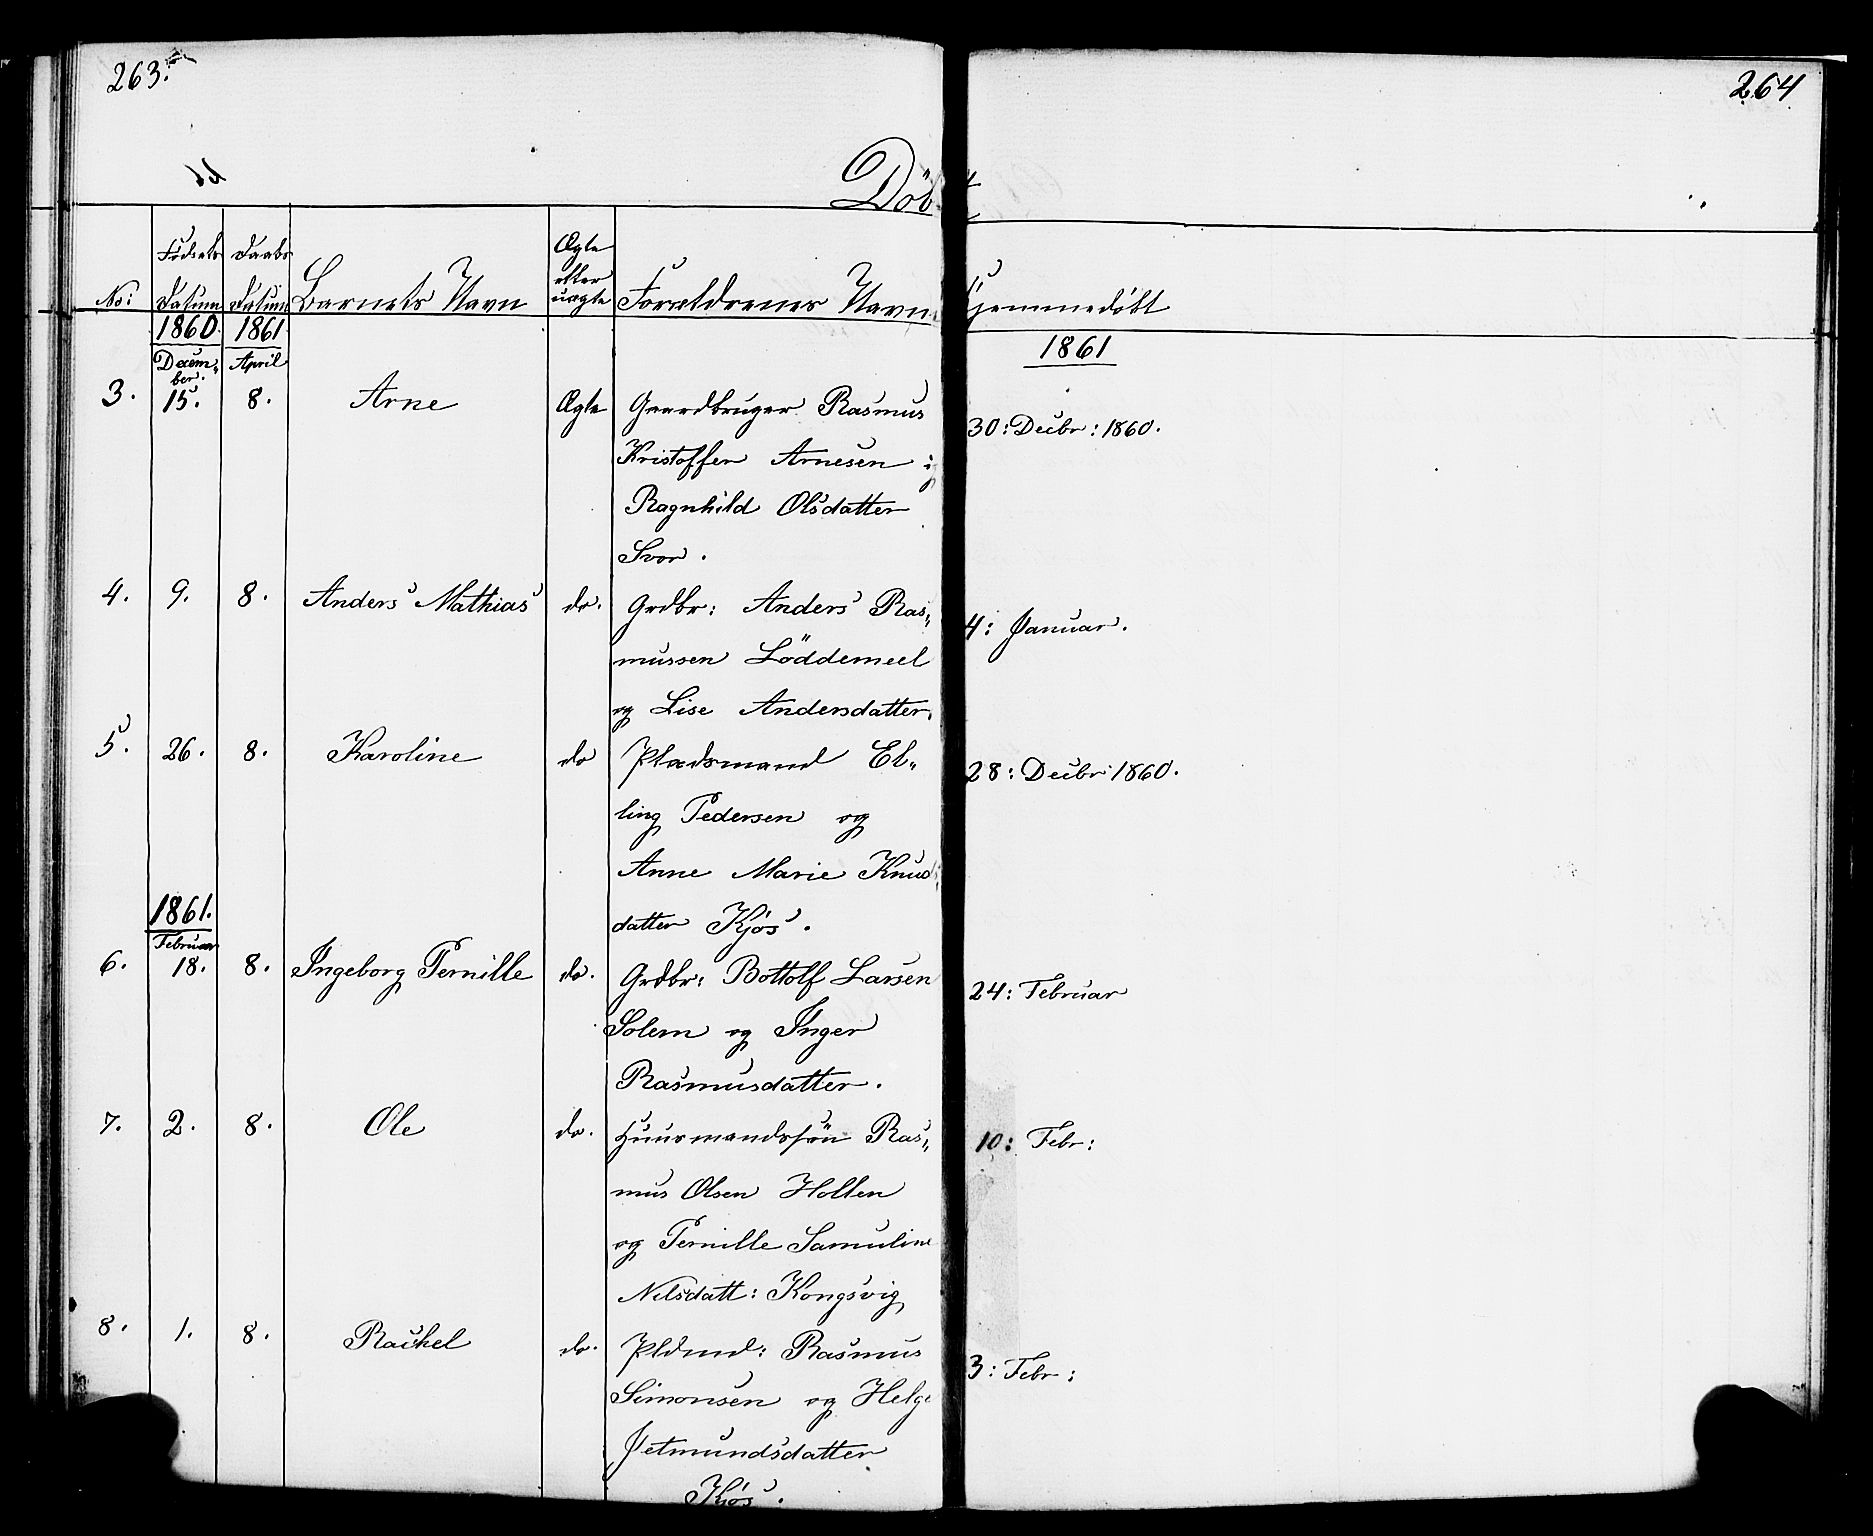 263.
264
Döbt
No:
Fødsels Datum
Daabs Datum
Barnets Navn
Ægte eller uægte
Forældrenes Navn
Hjemmedøbt
1860 1861
1861
Decem-
ber. April
3. 15. 8. Arne Ægte Gaardbruger Rasmus 30: Decbr: 1860.
Kristoffer Arnesen og
Ragnhild Olsdatter
Svor.
4. 9. 8. Anders Mathias do. Grdbr: Anders Ras- 4: Januar.
mussen Löddemeel
og Lise Andersdatter.
5. 26. 8. Karoline do Pladsmand El- 28: Decbr 1860.
ling Pedersen og
Anne Marie Knuds
datter Kjøs.
1861.
Februar
6. 18. 8. Ingeborg Pernille do. Grdbr: Bottolf Larsen 24: Februar
Solem og Inger
Rasmusdatter.
7. 2. 8. Ole do. Huusmandssön Ras- 10: Febr:
mus Olsen Holten
og Pernille Samuline
Nilsdatt: Kongsvig
8. 1. 8. Rachel do. Pldmd: Rasmus 3: Febr:
Simonsen og Helge
Jetmundsdatter
Kjøs.